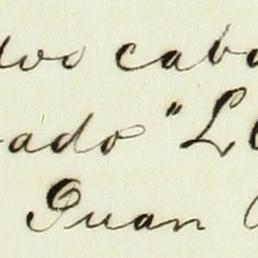 dos cab
ado "L
Juan